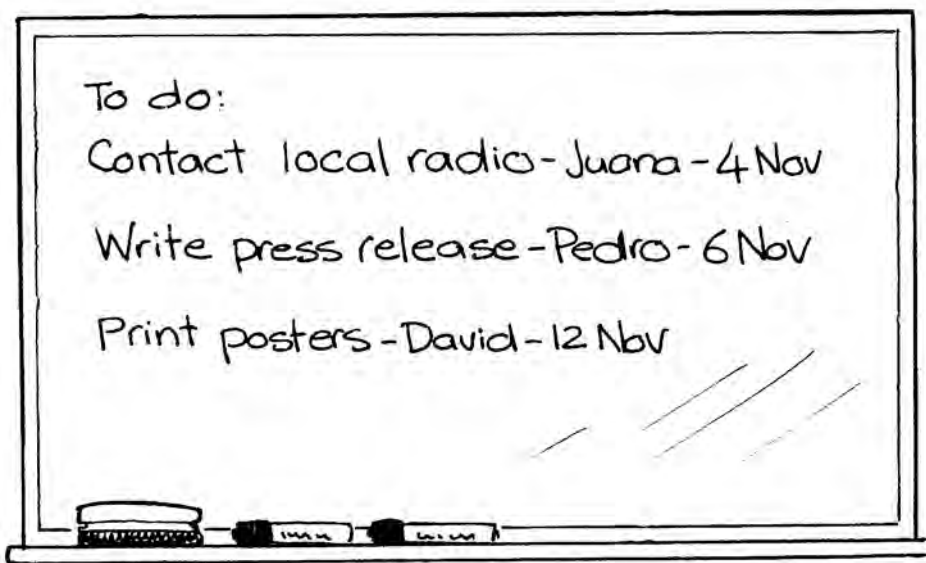 To do:
Contact local radio-Juana-4 Nov
Write press release-Pedro-6 Nov
Print posters-David-12 Nov